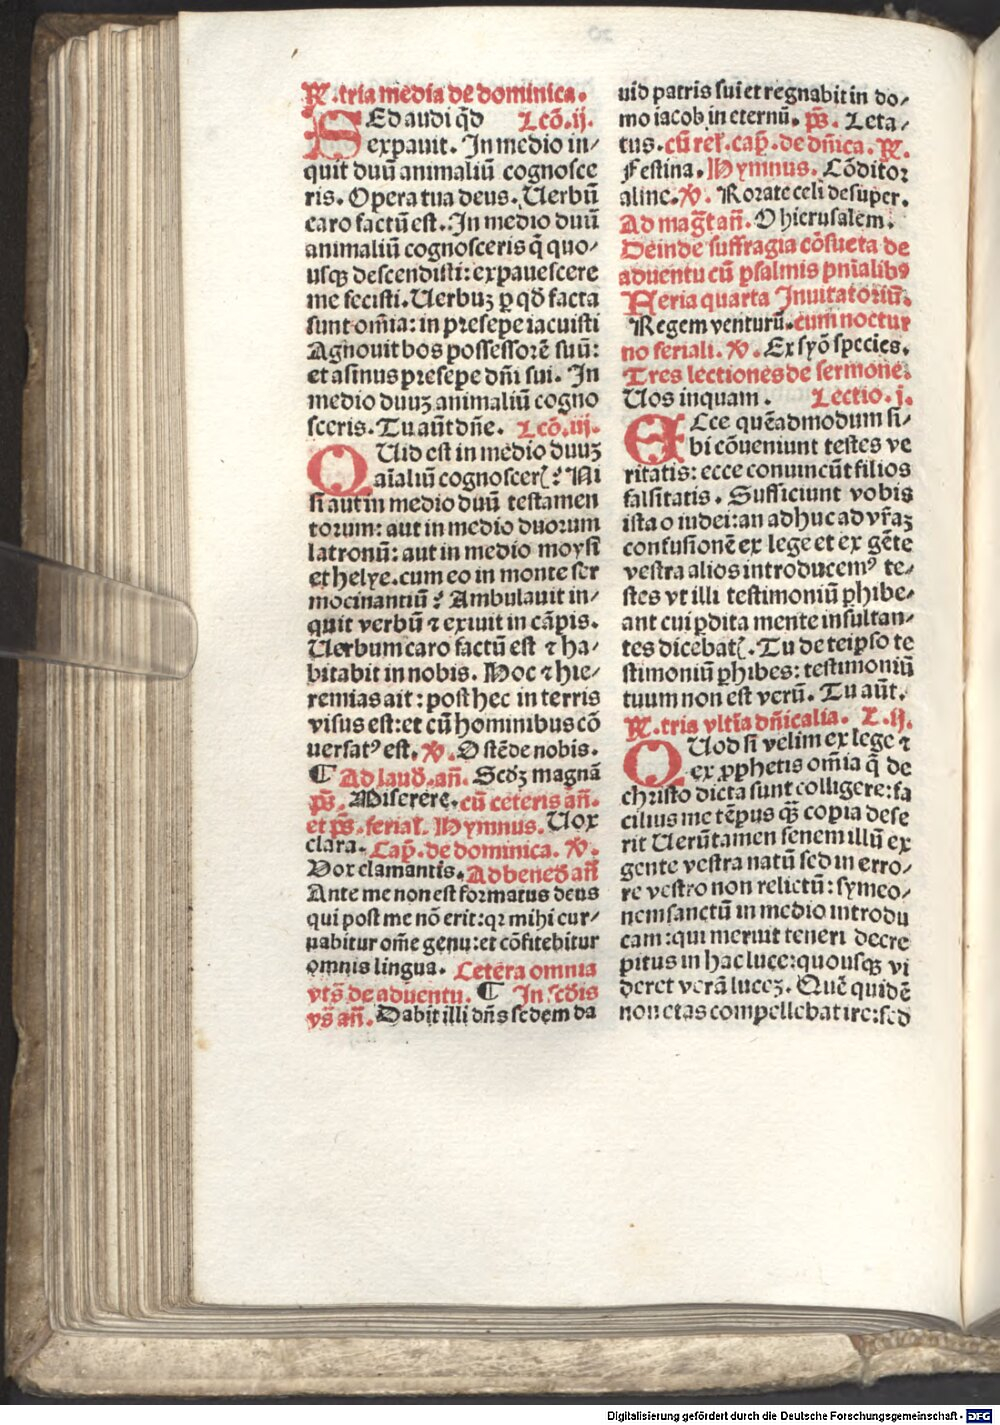 ℟.tria media de dominica.
SEd audi qd̄ Lcō.ij.
expauit. In medio in/
quit duū animaliū cognosce
ris. Opera tua deus. Uerbū
caro factū est. In medio duū
animaliū cognosceris q̄ quo/
usq̨ descendisti: expauescere
me fecisti. Uerbuꝫ ꝑ qd̄ facta
sunt om̄ia: in presepe iacuisti
Agnouit bos possessorē suū:
et asinus presepe dn̄i sui. In
medio duuꝫ animaliū cogno
sceris. Tu aūt dn̄e. Lcō.iij.
QUid est in medio duuꝫ
aīaliū cognoscerꝭ? Ni
si aut in medio duū testamen
torum: aut in medio duorum
latronū: aut in medio moysi
et helye. cum eo in monte ser
mocinantiū? Ambulauit in/
quit verbū ⁊ exiuit in cāpis.
Uerbum caro factū est ⁊ ha/
bitabit in nobis. Hoc ⁊ hie/
remias ait: post hec in terris
visus est: et cū hominibus cō
uersatꝰ est. ℣. Ostēde nobis.
¶ Ad laud̄. an̄. Scd̄ꝫ magnā
ps̄. Miserere. cū ceteris an̄.
et ps̄. ferial̄. Hymnus. Uox
clara. Cap̄. de dominica. ℣.
Vox clamantis. Ad bened̄ an̄
Ante me non est formatus deus
qui post me nō erit: qꝛ mihi cur/
uabitur om̄e genu: et cōfitebitur
omnis lingua. Cetera omnia
vts̄ de aduentu. ¶ In scd̄is
vs̄ an̄. Dabit illi dn̄s sedem da
uid patris sui et regnabit in do/
mo iacob in eternū. ps̄. Leta/
tus. cū rel̄. cap̄. de dn̄ica. ℟.
Festina. Hymnus. Cōditor
alme. ℣. Rorate celi desuper.
Ad mag̅t an̄. O hierusalem.
Deinde suffragia cōsueta de
aduentu cū psalmis pn̄ialibꝰ
Feria quarta Inuitatoriū.
Regem venturū. cum noctur
no feriali. ℣. Ex syō species.
Tres lectiones de sermone.
Uos inquam. Lectio.j.
ECce quēadmodum si/
bi cōueniunt testes ve
ritatis: ecce conuincūt filios
falsitatis. Sufficiunt vobis
ista o iudei: an adhuc ad vr̄aꝫ
confusionē ex lege et ex gēte
vestra alios introducemꝰ te/
stes vt illi testimoniū ꝓhibe/
ant cui ꝑdita mente insultan/
tes dicebatꝭ. Tu de teipso te
stimoniū ꝑhibes: testimoniū
tuum non est verū. Tu aūt.
℟.tria vltīa dn̄icalia. L.ij.
QUod si velim ex lege ⁊
ex ꝓphetis om̄ia q̄ de
christo dicta sunt colligere: fa
cilius me tēpus qȝ copia dese
rit Uerūtamen senem illū ex
gente vestra natū sed in erro/
re vestro non relictū: symeo/
nem sanctū in medio introdu
cam: qui meruit teneri decre
pitus in hac luce: quousq̨ vi
deret verā luceꝫ. Quē quidē
non etas compellebat ire: sed
Digitalisierung gefördert durch die Deutsche Forschungsgemeinschaft - DFG